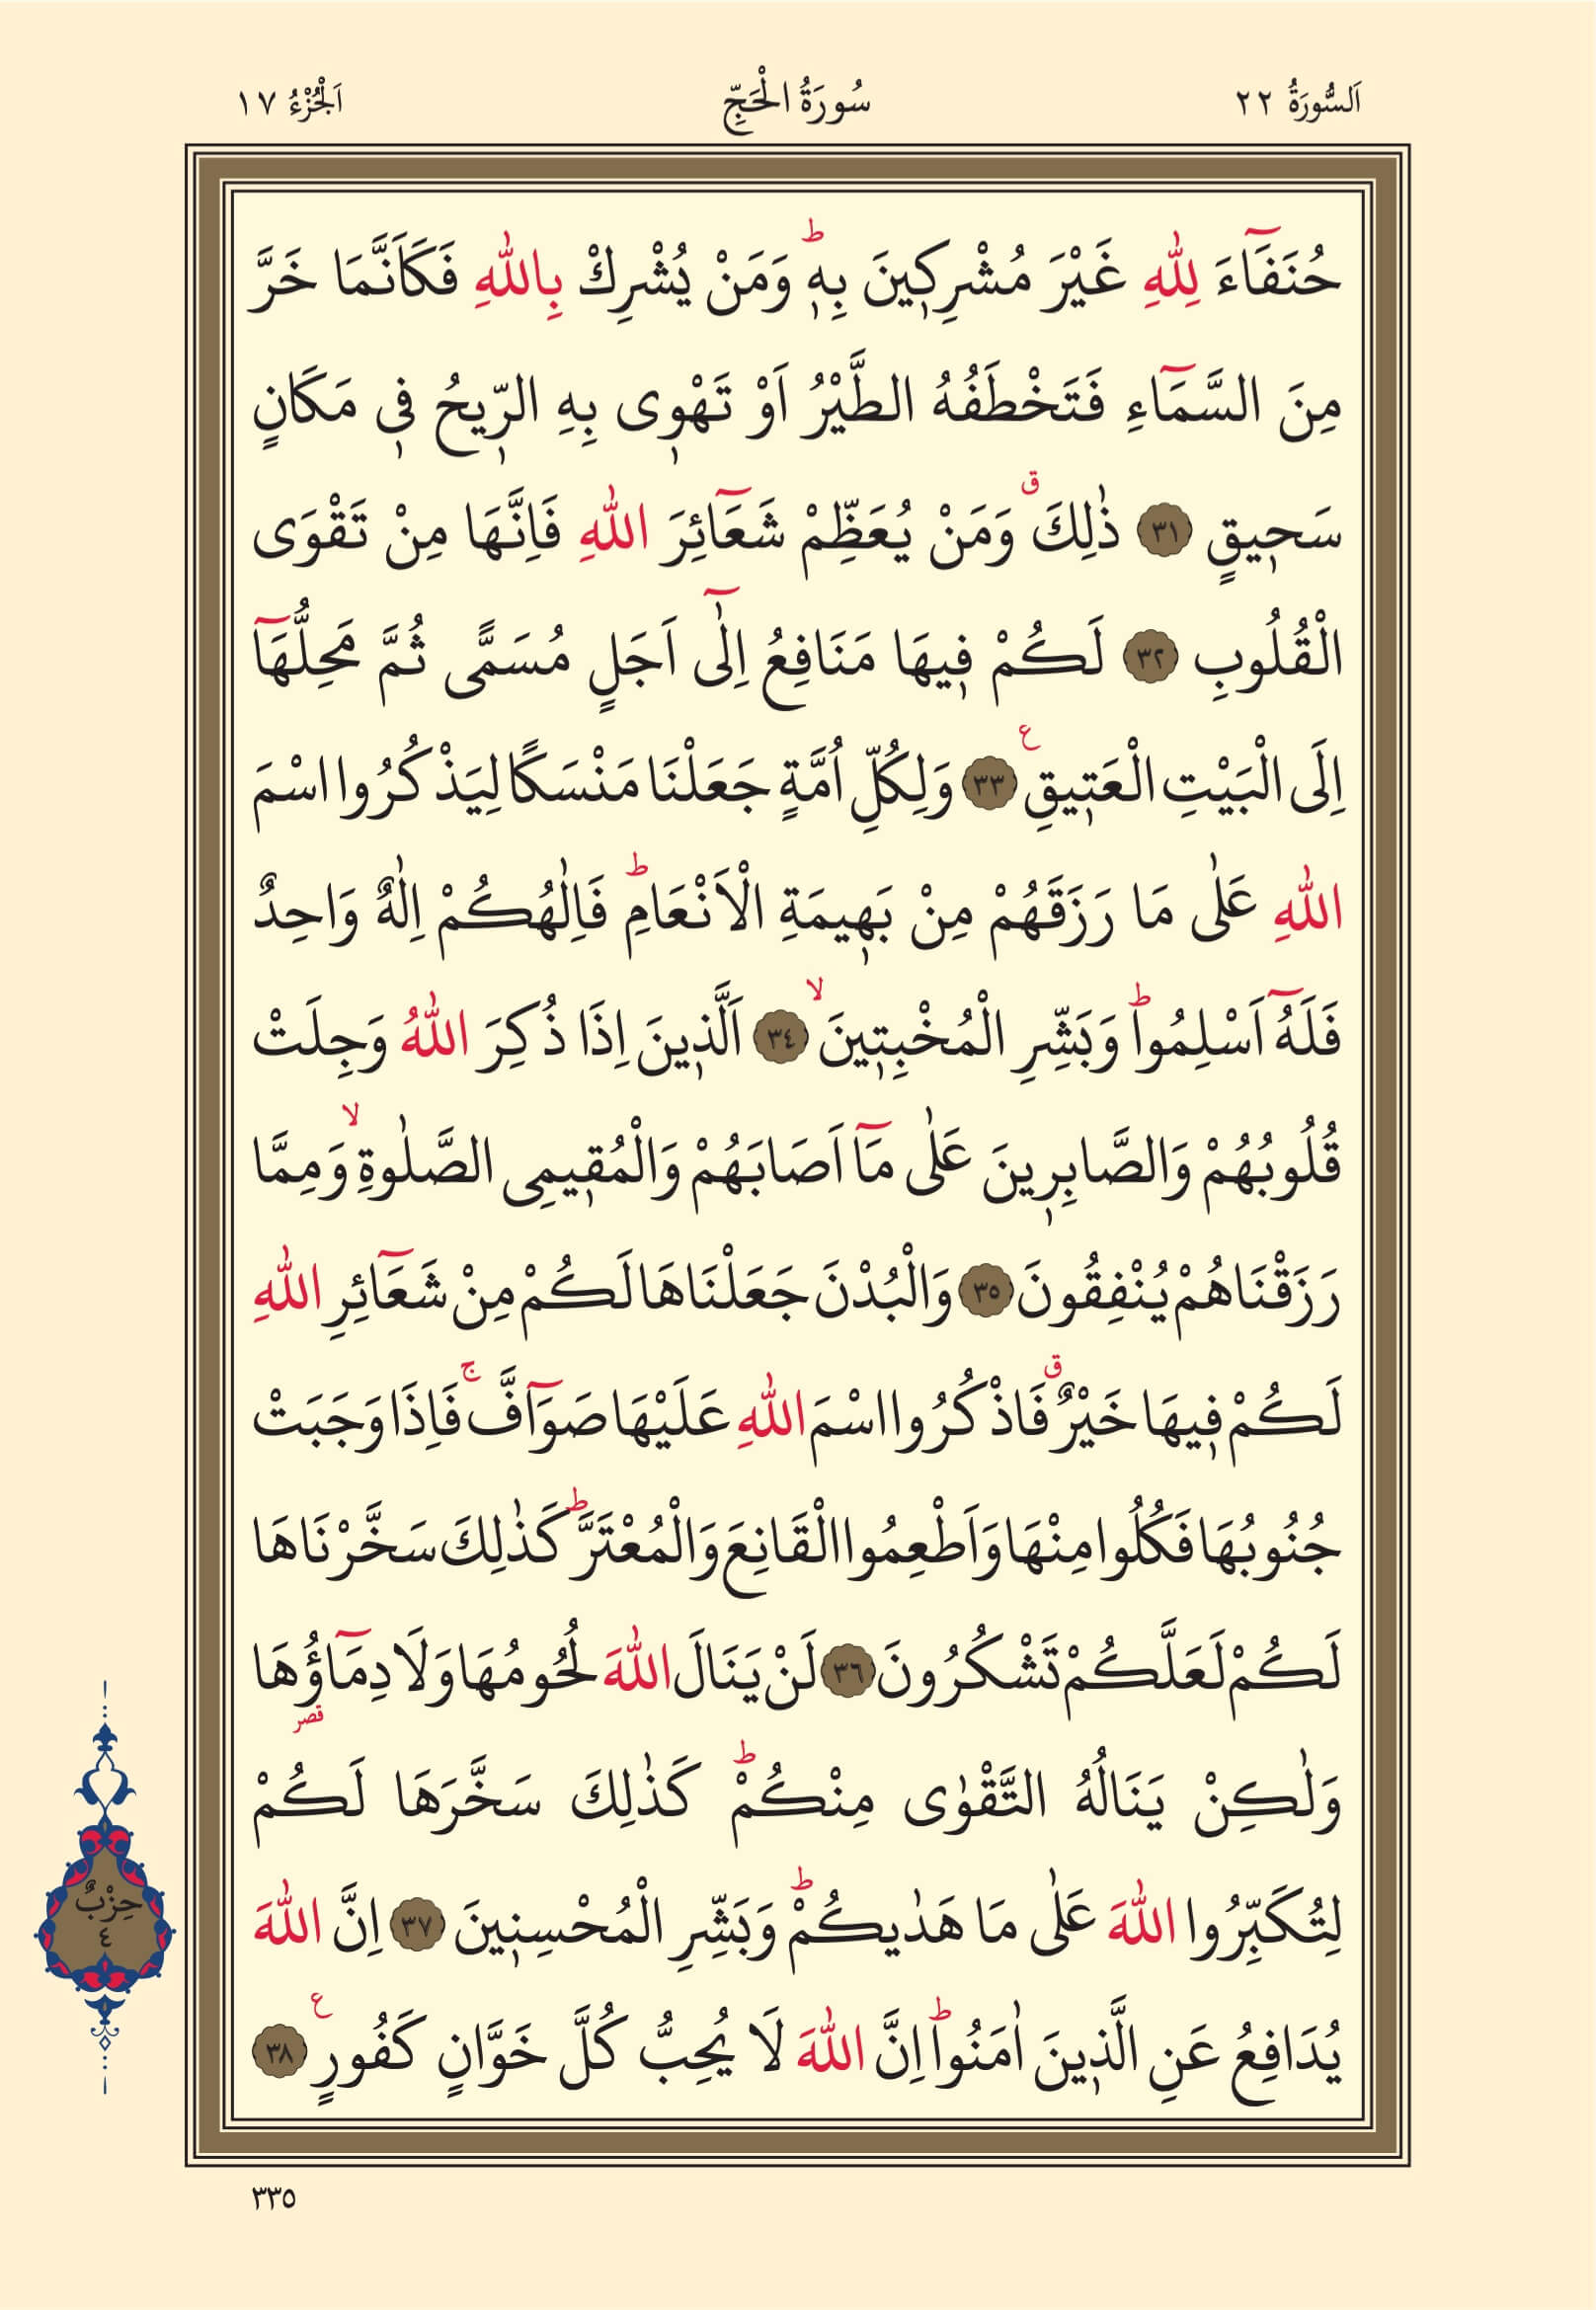 اَلسُّورَةُ ٢٢
سُورَةُ الْحَجِّ
اَلْجُزْءُ ١٧
حُنَفَٓاءَ لِلّٰهِ غَيْرَ مُشْرِك۪ينَ بِه۪ۜ وَمَنْ يُشْرِكْ بِاللّٰهِ فَكَاَنَّمَا خَرَّ
مِنَ السَّمَٓاءِ فَتَخْطَفُهُ الطَّيْرُ اَوْ تَهْو۪ى بِهِ الرّ۪يحُ ف۪ى مَكَانٍ
سَح۪يقٍ ٣١ ذٰلِكَۗ وَمَنْ يُعَظِّمْ شَعَٓائِرَ اللّٰهِ فَاِنَّهَا مِنْ تَقْوَى
الْقُلُوبِ ٣٢ لَكُمْ ف۪يهَا مَنَافِعُ اِلٰٓى اَجَلٍ مُسَمًّى ثُمَّ مَحِلُّهَٓا
اِلَى الْبَيْتِ الْعَت۪يقِ ع ٣٣ وَلِكُلِّ اُمَّةٍ جَعَلْنَا مَنْسَكًا لِيَذْكُرُوا اسْمَ
اللّٰهِ عَلٰى مَا رَزَقَهُمْ مِنْ بَه۪يمَةِ الْاَنْعَامِۜ فَاِلٰهُكُمْ اِلٰهٌ وَاحِدٌ
فَلَهُٓ اَسْلِمُواۜ وَبَشِّرِ الْمُخْبِت۪ينَۙ ٣٤ اَلَّذ۪ينَ اِذَا ذُكِرَ اللّٰهُ وَجِلَتْ
قُلُوبُهُمْ وَالصَّابِر۪ينَ عَلٰى مَٓا اَصَابَهُمْ وَالْمُق۪يمِى الصَّلٰوةِۙ وَمِمَّا
رَزَقْنَاهُمْ يُنْفِقُونَ ٣٥ وَالْبُدْنَ جَعَلْنَاهَا لَكُمْ مِنْ شَعَٓائِرِ اللّٰهِ
لَكُمْ ف۪يهَا خَيْرٌۗ فَاذْكُرُوا اسْمَ اللّٰهِ عَلَيْهَا صَوَٓافَّۚ فَاِذَا وَجَبَتْ
جُنُوبُهَا فَكُلُوا مِنْهَا وَاَطْعِمُوا الْقَانِعَ وَالْمُعْتَرَّۜ كَذٰلِكَ سَخَّرْنَاهَا
لَكُمْ لَعَلَّكُمْ تَشْكُرُونَ ٣٦ لَنْ يَنَالَ اللّٰهَ لُحُومُهَا وَلَا دِمَٓاؤُهَا
قصر
وَلٰكِنْ يَنَالُهُ التَّقْوٰى مِنْكُمْۜ كَذٰلِكَ سَخَّرَهَا لَكُمْ
لِتُكَبِّرُوا اللّٰهَ عَلٰى مَا هَدٰيكُمْۜ وَبَشِّرِ الْمُحْسِن۪ينَ ٣٧ اِنَّ اللّٰهَ
يُدَافِعُ عَنِ الَّذ۪ينَ اٰمَنُواۜ اِنَّ اللّٰهَ لَا يُحِبُّ كُلَّ خَوَّانٍ كَفُورٍ ع ٣٨
حِزْبٌ
٤
٣٣٥